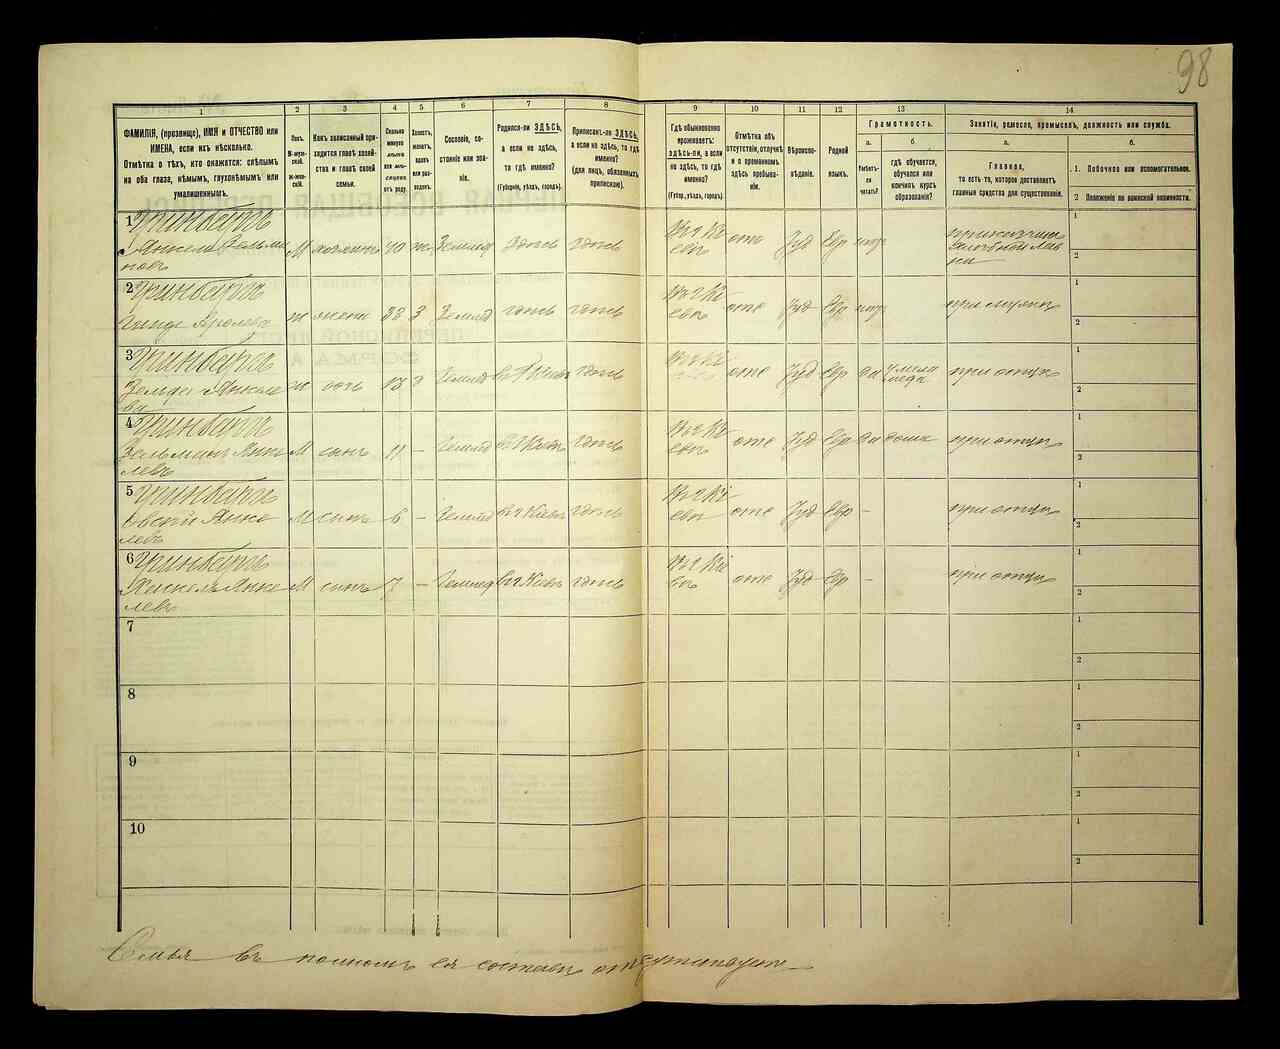 98
1 2 3 4 5 6 7 8 9 10 11 12 13 14
ФАМИЛІЯ, (прозвище), ИМЯ и ОТЧЕСТВО или
ИМЕНА, если ихъ нѣсколько.
Отмѣтка о тѣхъ, кто окажется: слѣпымъ
на оба глаза, нѣмымъ, глухонѣмымъ или
умалишеннымъ.
Полъ.
М-муж-
ской.
ж-жен-
скій.
Какъ записанный при-
ходится главѣ хозяй-
ства и главѣ своей
семьи.
Сколько
минуло
лѣтъ
или мѣ-
сяцевъ
отъ роду.
Холостъ,
женатъ,
вдовъ
или раз-
веденъ.
Сословіе, со-
стояніе или зва-
ніе.
Родился-ли ЗДѢСЬ,
а если не здѣсь,
то гдѣ именно?
(Губернія, уѣздъ, городъ).
Приписанъ-ли ЗДѢСЬ,
а если не здѣсь, то гдѣ
именно?
(для лицъ, обязанныхъ
припискою).
Гдѣ обыкновенно
проживаетъ:
здѣсь-ли, а если
не здѣсь, то гдѣ
именно?
(Губер., уѣздъ, городъ).
Отмѣтка объ
отсутствіи, отлучкѣ
и о временномъ
здѣсь пребыва-
ніи.
Вѣроиспо-
вѣданіе.
Родной
языкъ.
Грамотность.
а. б.
Умѣетъ-
ли
читать?
гдѣ обучается,
обучался или
кончилъ курсъ
образованія?
Занятіе, ремесло, промыселъ, должность или служба.
а. б.
Главное,
то есть то, которое доставляетъ
главныя средства для существованія.
1. Побочное или вспомогательное.
2 Положеніе по воинской повинности.
1 Гринбергъ
Янкель Зельма
новъ М хозяинъ 40 ж Землед здѣсь здѣсь
въ г Кі
евѣ отс Іуд Евр
приказчикъ
1
2
2 Гринбергъ
ж жена 33 З Землед здѣсь здѣсь
въ г Кі
евѣ отс Іуд Евр при мужѣ
1
2
3 Гринбергъ
Янкеле
ва ж дочь 13 Землед въ г Кіевѣ здѣсь
въ г Кі
отс Іуд Евр да при отцѣ
1
2
4 Гринбергъ
Зельманъ Янке
левъ М сынъ 11 – Землед въ г Кіевѣ здѣсь
въ г Кі
евѣ отс Іуд Евр да дома при отцѣ
1
2
5 Гринбергъ
Янке
левъ М сынъ 6 – Землед въ г Кіевѣ здѣсь
въ г Кі
евѣ отс Іуд Евр – при отцѣ
1
2
6 Гринбергъ
Хаскель Янке
левъ М сынъ – Землед въ г Кіевѣ здѣсь
въ г Кі
евѣ отс Іуд Евр – при отцѣ
1
2
7
1
2
8
1
2
9
1
2
10
1
2
Семья въ полномъ ея составѣ отсутствуетъ